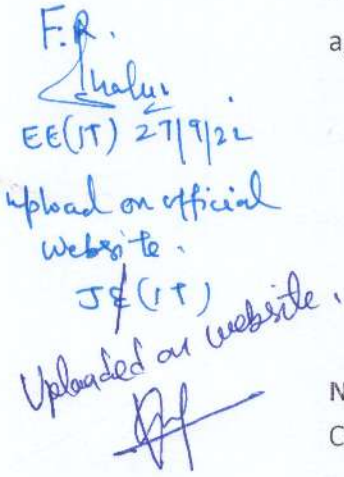 F.R.
EE(IT) 27/9/22
upload on official
website.
JE(IT)
Uploaded on website.
a
N
C